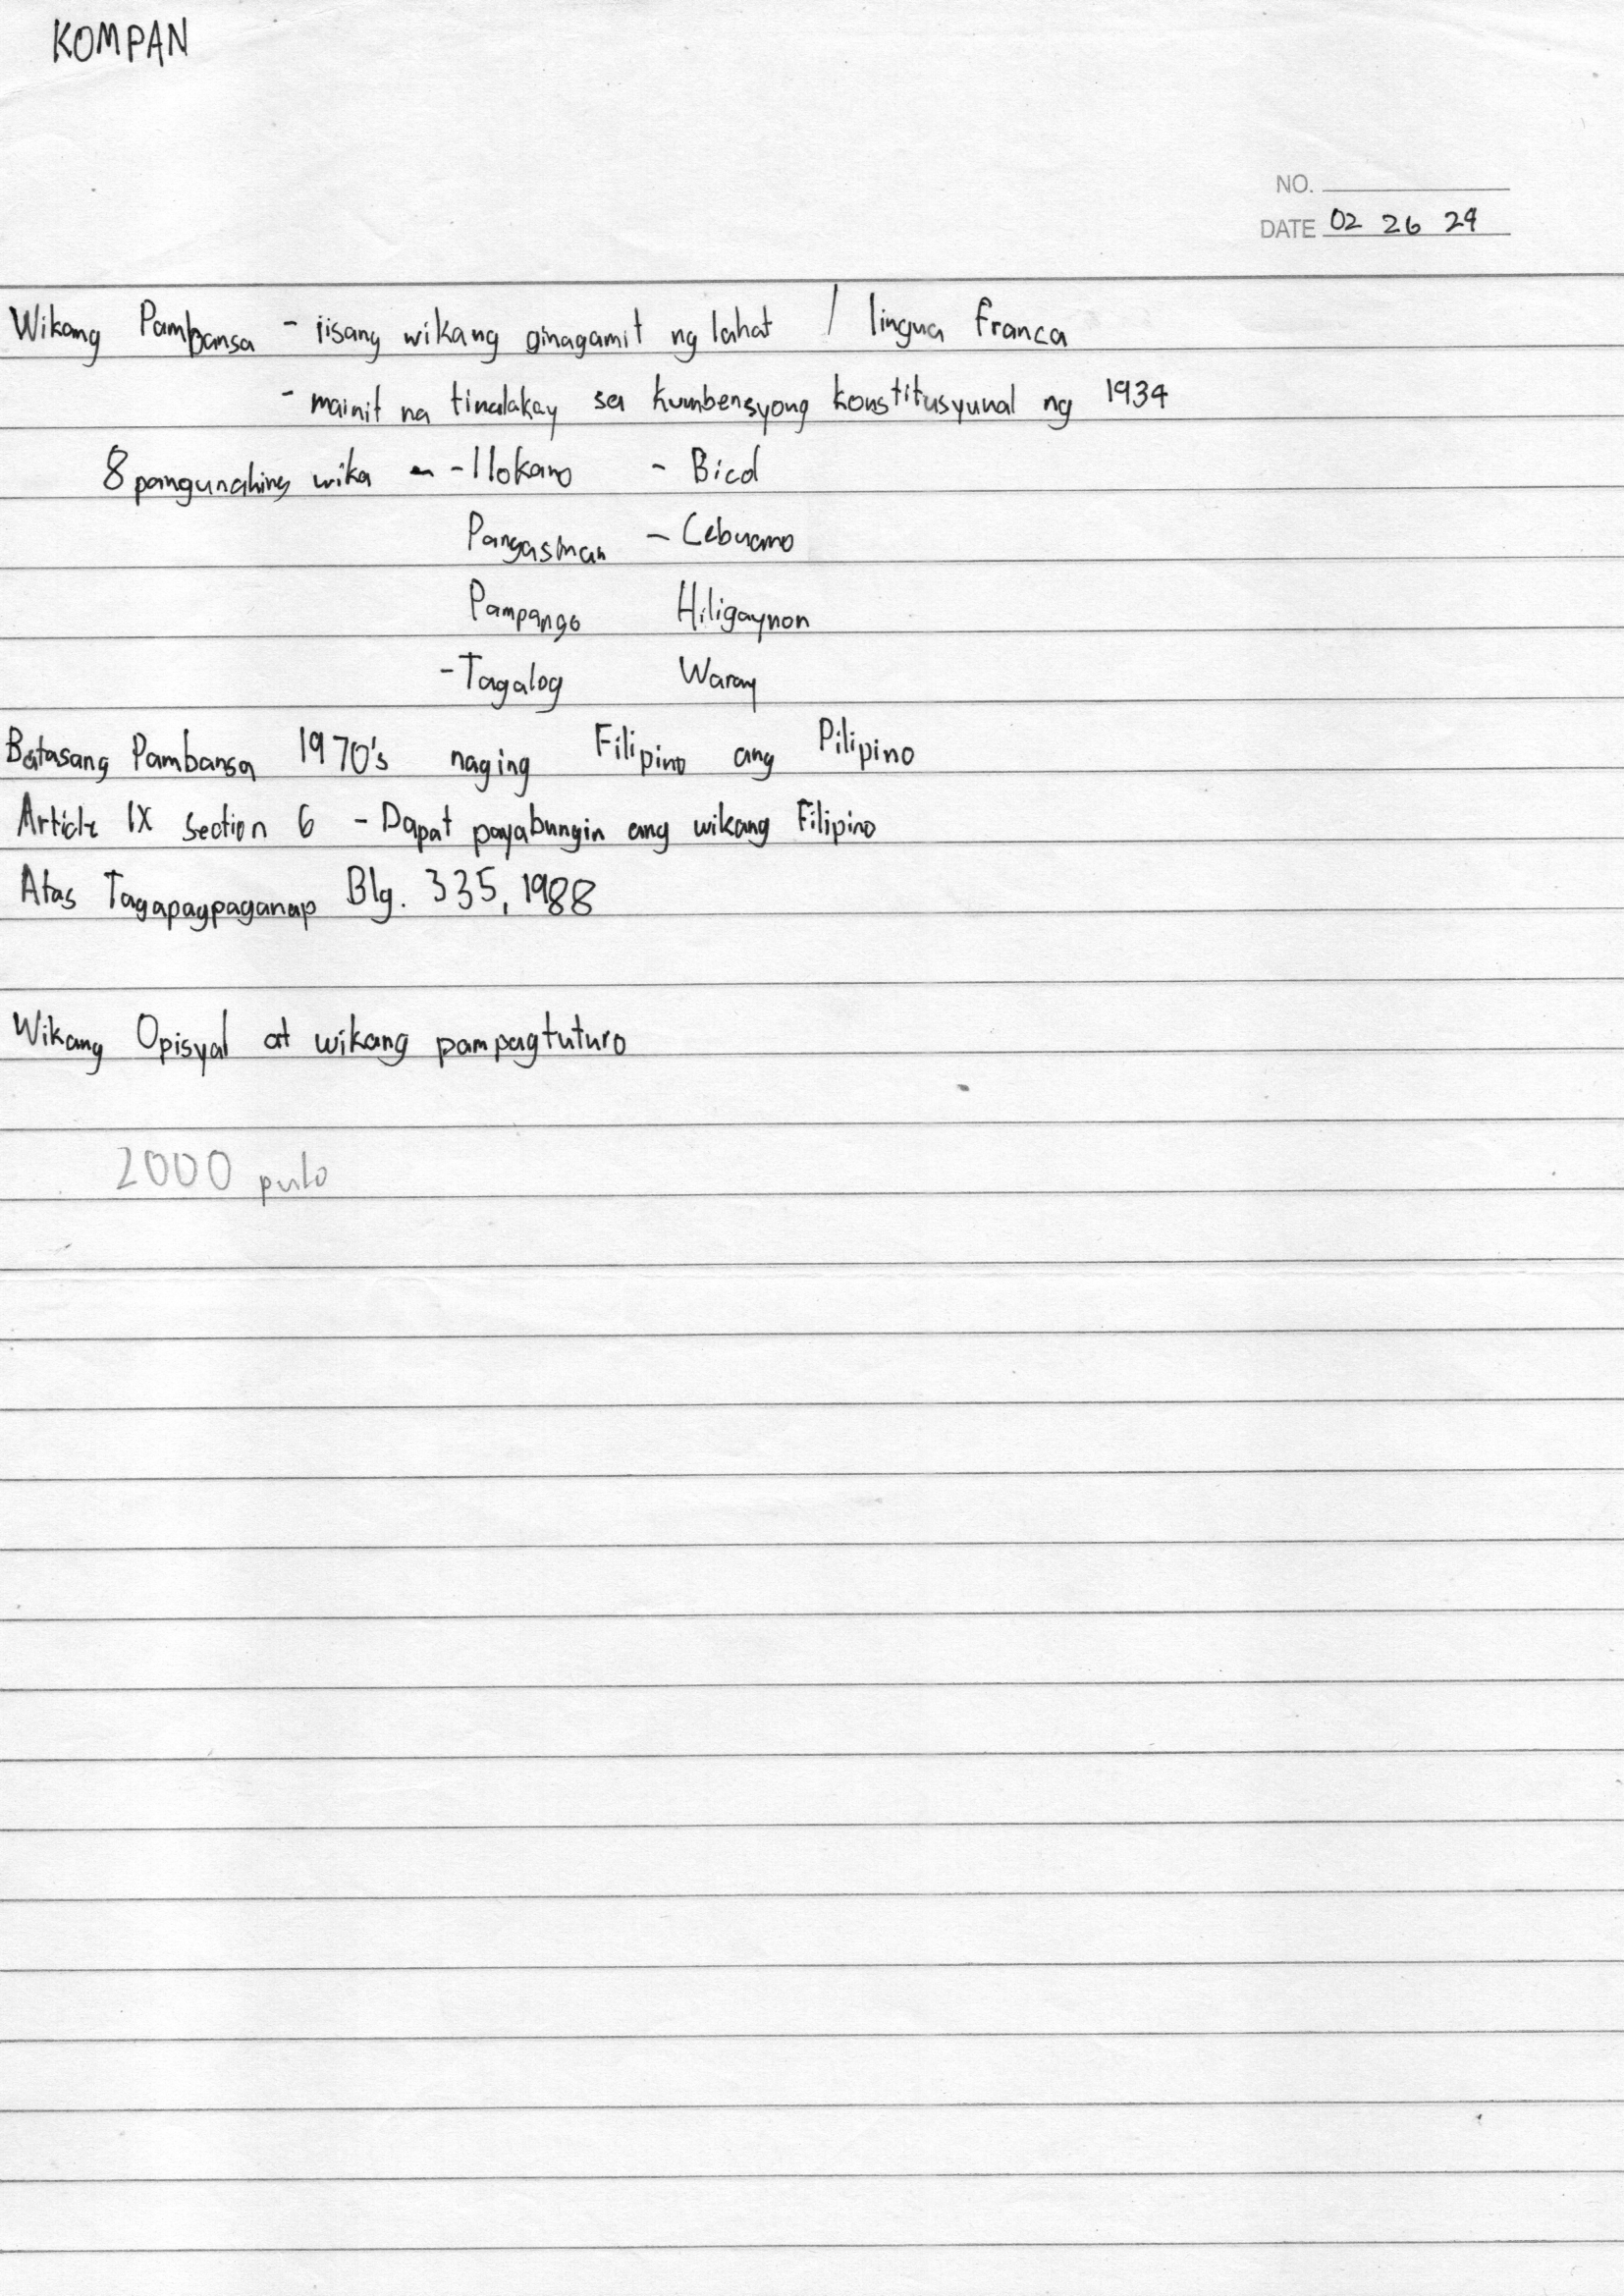 KOMPAN
NO.
DATE 02 26 24
Wikang Pambansa - iisang wikang ginagamit ng lahat / lingua franca
- mainit na tinalakay sa kumbensyong konstitusyunal ng 1934
8 pangunahing wika - - Ilokano - Bicol
Pangasinan - Cebuano
Pampango Hiligaynon
- Tagalog Waray
Batasang Pambansa 1970's naging Filipino ang Pilipino
Article IX section 6 - Dapat payabungin ang wikang Filipino
Atas Tagapagpaganap Blg. 335, 1988
Wikang Opisyal at wikang pampagtuturo
2000 pulo